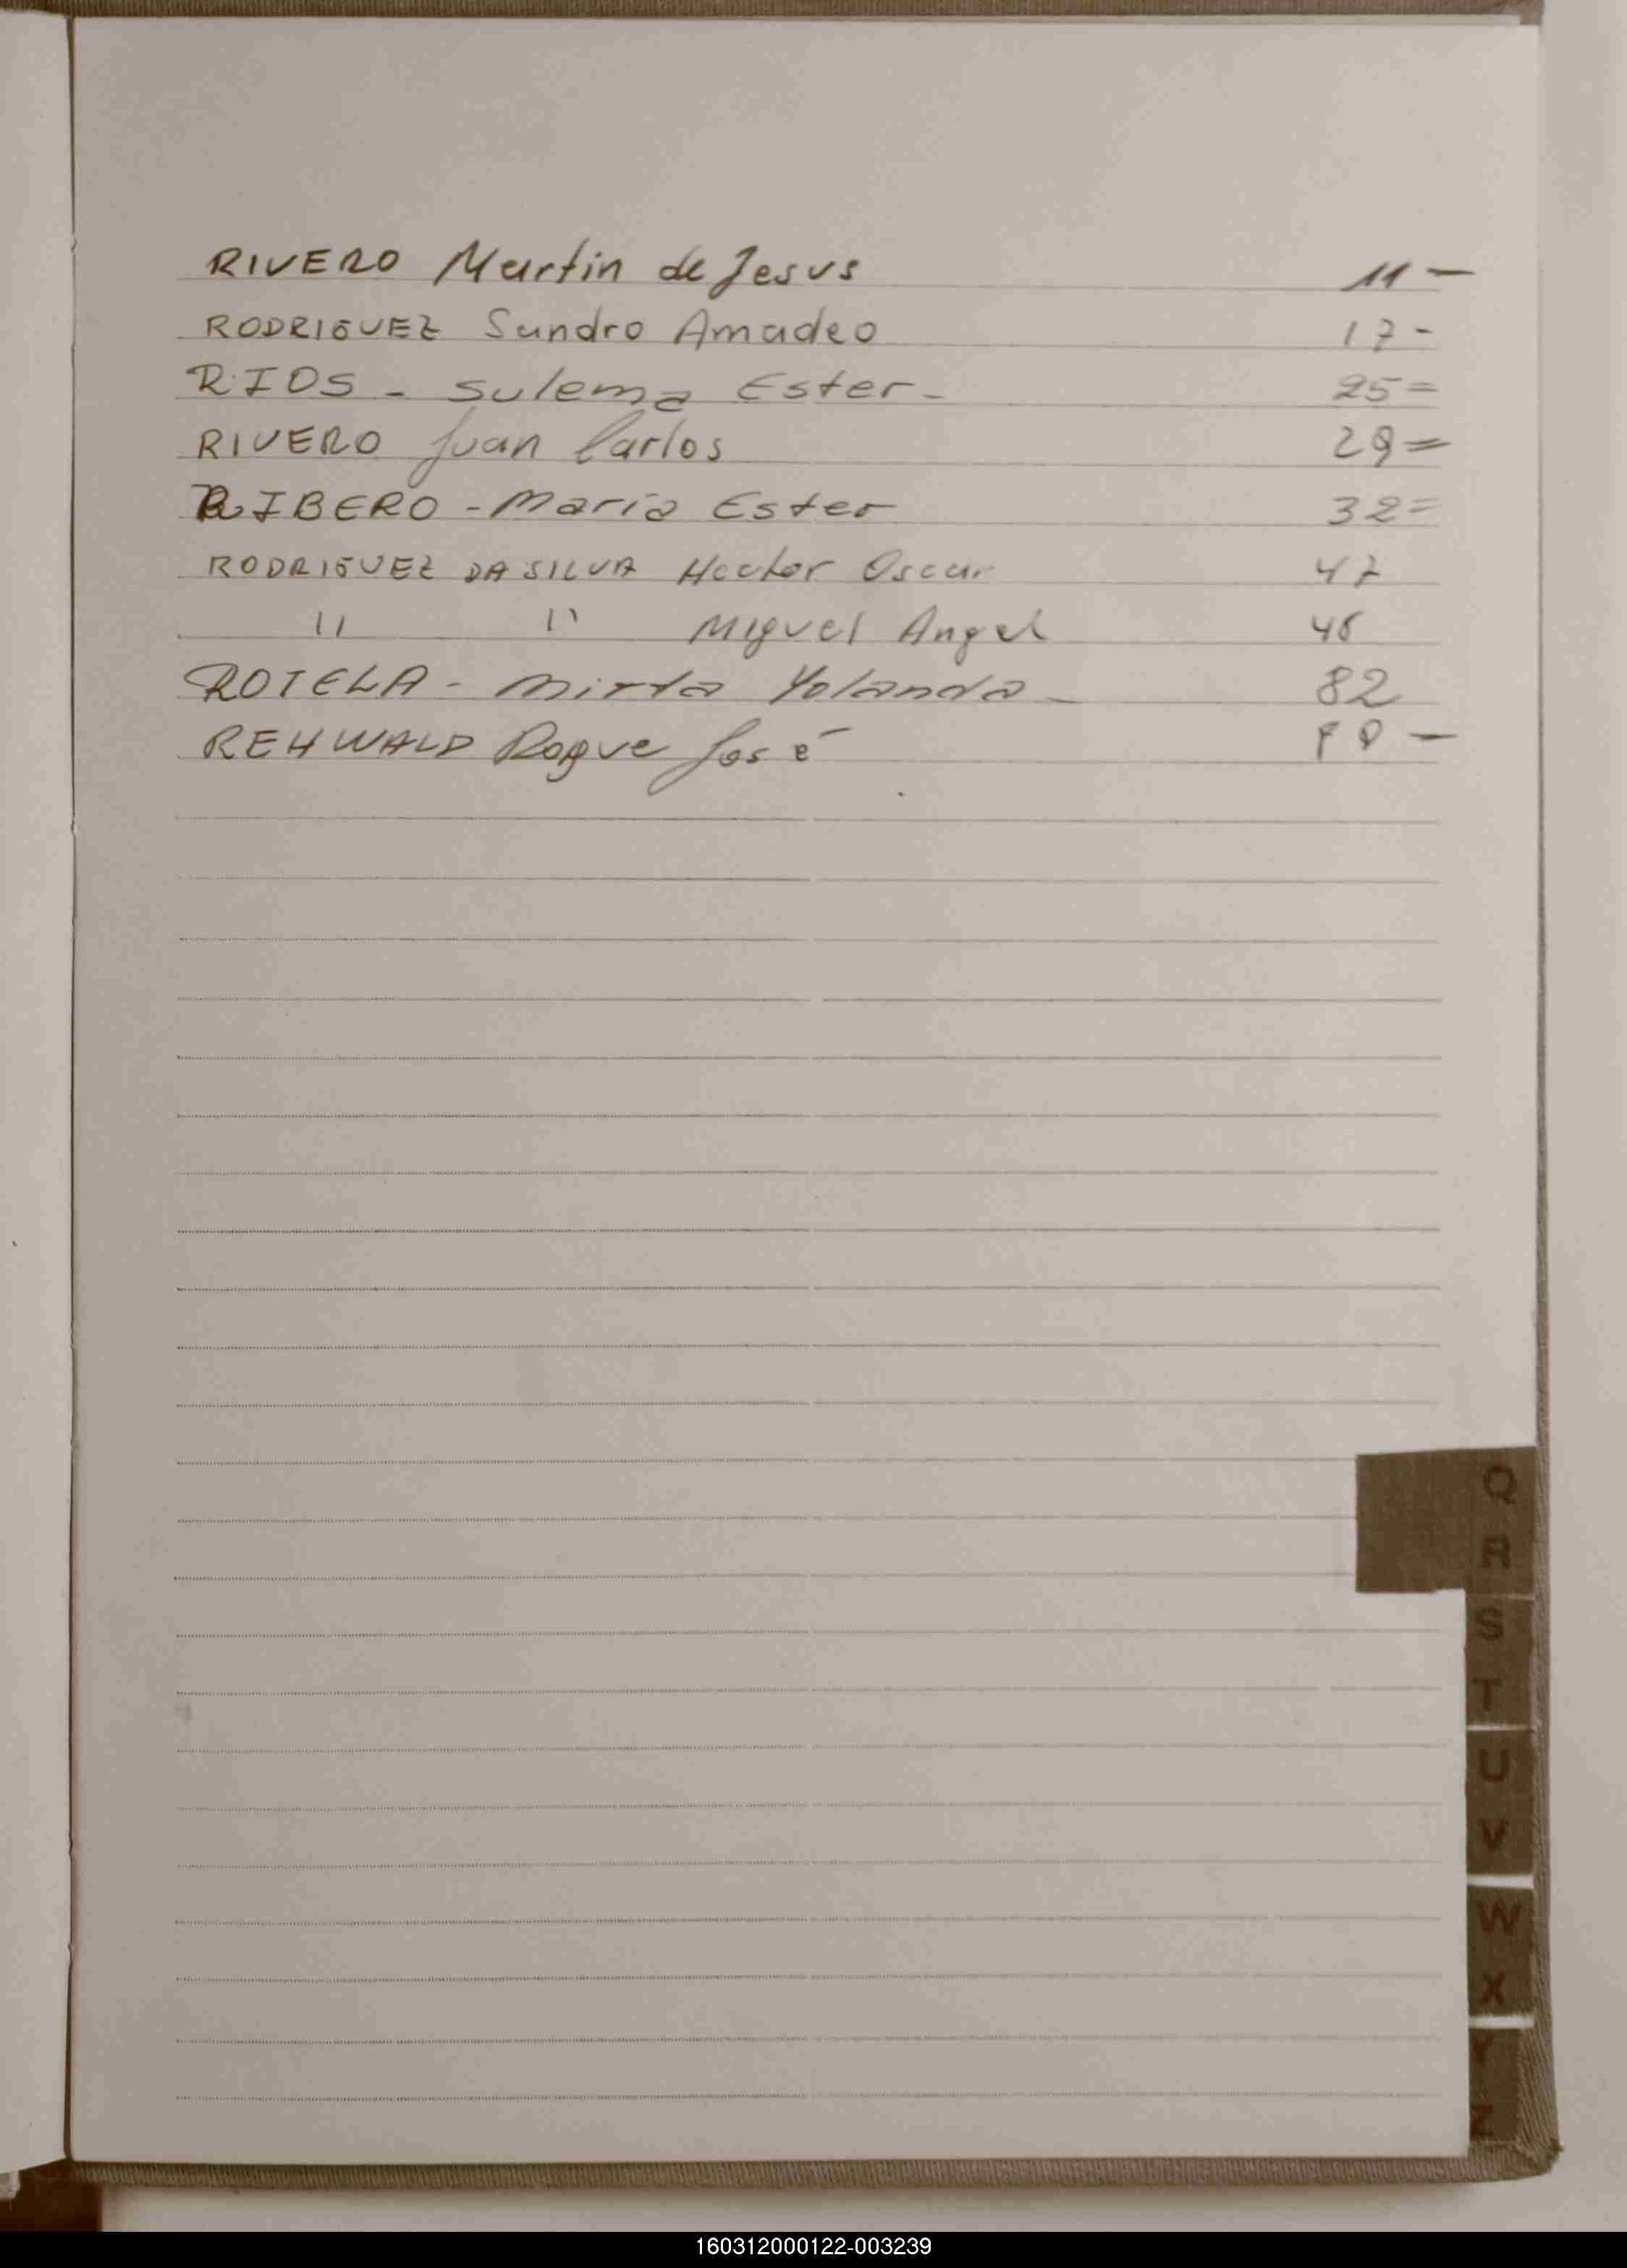 RIVERO Martin de Jesus 11 -
RODRIGUEZ Sandro Amadeo 17 -
RIOS - Sulema Ester - 25 =
RIVERO Juan Carlos 29 =
RIBERO - Maria Ester 32 =
RODRIGUEZ DA SILVA Hector Oscar 47
" " Miguel Angel 48
ROTELA - Mirta Yolanda - 82
REHWALD Roque José
Q
R
S
T
U
V
W
X
Y
Z
160312000122-003239